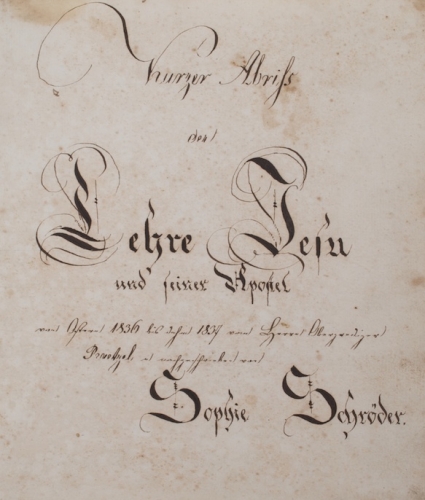 Kurzer Abriß
der
Lehre Jesu
und seiner Apostel
von Ostern 1836 bis dahin 1837 vom Herrn Oberprediger
nachgeschrieben von
Sophie Schröder.